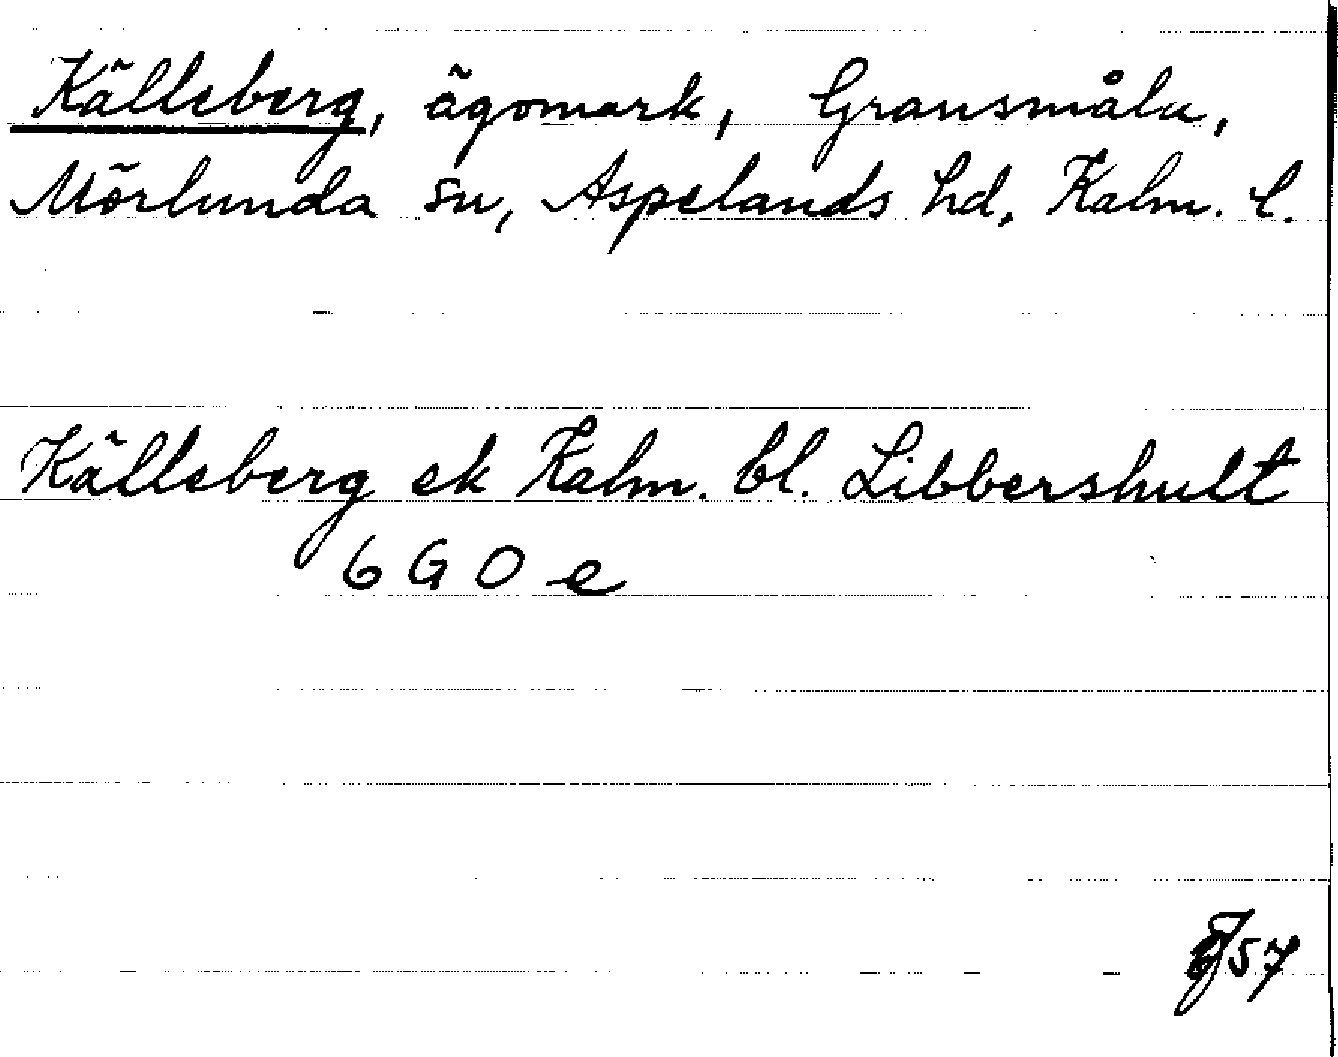 Källeberg, ägomark, Gransmåla,
Mörlunda sn, Aspelands hd, Kalm. l.
Källeberg ek Kalm. bl. Libbershult
6 G 0 e
57